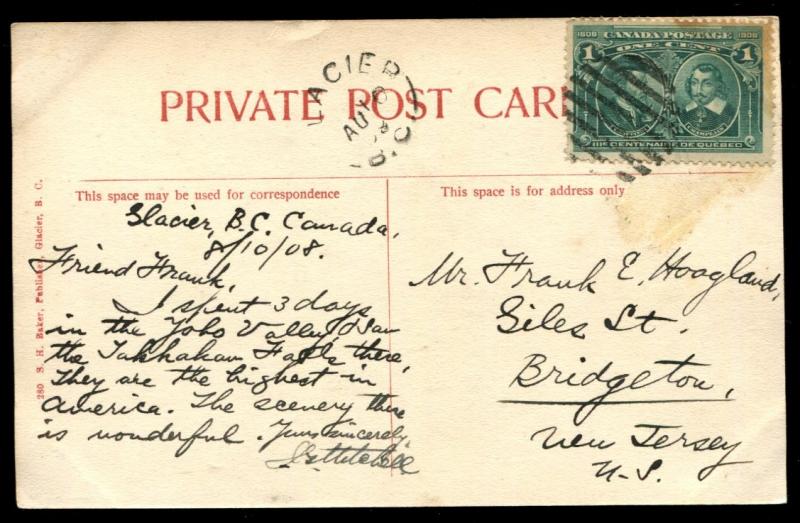 GLACIER
AU 10
B.C.
1608 CANADA POSTAGE 1908
1 ONE CENT 1
CARTIER CHAMPLAIN
IIIe CENTENAIRE DE QUÉBEC
PRIVATE POST CARD
This space may be used for correspondence
This space is for address only
280 S. H. Baker, Publisher, Glacier, B. C.
Glacier, B.C. Canada,
8/10/08.
Friend Frank,
I spent 3 days
in the Yoho Valley & saw
the Takkakaw Falls there,
They are the highest in
America. The scenery there
is wonderful. Yours sincerely,
Mr. Frank E. Hoagland,
Giles St.
Bridgeton,
New Jersey
U.S.